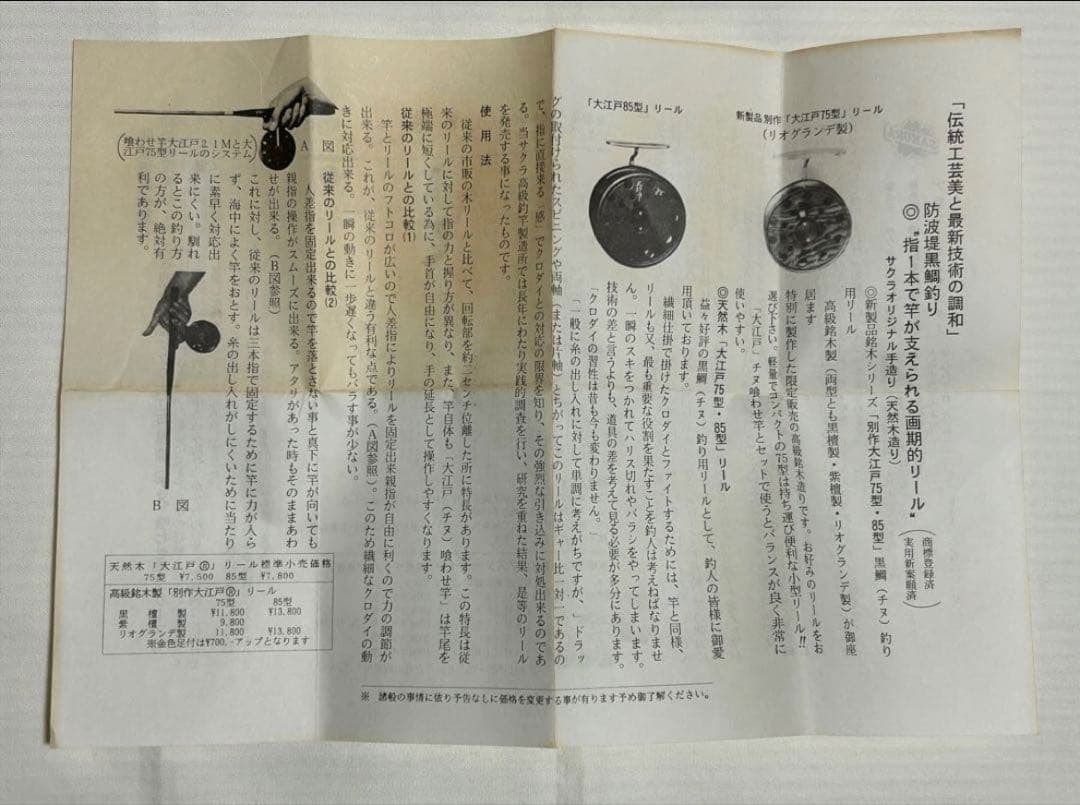 「伝統工芸美と最新技術の調和」
防波堤黒鯛釣り
◎〝指1本で竿が支えられる画期的リール〟
(商標登録済
実用新案願済)
サクラオリジナル手造り(天然木造り)
◎新製品銘木シリーズ「別作大江戸75型・85型」黒鯛(チヌ)釣り
用リール
高級銘木製(両型とも黒檀製・紫檀製・リオグランデ製)が御座
居ます
特別に製作した限定販売の高級銘木造りです。お好みのリールをお
選び下さい。軽量でコンパクトの75型は持ち運び便利な小型リール!!
「大江戸」チヌ喰わせ竿とセットで使うとバランスが良く非常に
使いやすい。
新製品別作「大江戸75型」リール
(リオグランデ製)
「大江戸85型」リール
◎天然木「大江戸75型・85型」リール
益々好評の黒鯛(チヌ)釣り用リールとして、釣人の皆様に御愛
用頂いております。
繊細仕掛で掛けたクロダイとファイトするためには、竿と同様、
リールも又、最も重要な役割を果たすことを釣人は考えねばなりませ
ん。一瞬のスキをつかれてハリス切れやバラシをやってしまいます。
技術の差と言うよりも、道具の差を考えて見る必要が多分にあります。
「クロダイの習性は昔も今も変わりません。」
「一般に糸の出し入れに対して単調に考えがちですが、」ドラッ
グの取付けられたスピニングや両軸(または片軸)とちがってこのリールはギャー比一対一であるの
で、指に直接来る「感」でクロダイとの対応の限界を知り、その強烈な引き込みに対処出来るのであ
る。当サクラ高級釣竿製造所では長年にわたり実践的調査を行い、研究を重ねた結果、是等のリール
を発売する事になったものです。
使用法
従来の市販の木リールと比べて、回転部を約二センチ位離した所に特長があります。この特長は従
来のリールに対して指の力と握り方が異なり、また、竿自体も「大江戸(チヌ)喰わせ竿」は竿尾を
極端に短くしている為に、手首が自由になり、手の延長として操作しやすくなります。
従来のリールとの比較(1)
竿とリールのフトコロが広いので人差指によりリールを固定出来親指が自由に利くので力の調節が
出来る。これが、従来のリールと違う有利な点である。(A図参照)。このため繊細なクロダイの動
きに対応出来る。一瞬の動きに一歩遅くなってもバラす事が少ない。
従来のリールとの比較(2)
人差指を固定出来るので竿を落とさない事と真下に竿が向いても
親指の操作がスムーズに出来る。アタリがあった時もそのままあわ
せが出来る。(B図参照)
これに対し、従来のリールは三本指で固定するために竿に力が入ら
ず、海中によく竿をおとす。糸の出し入れがしにくいために当たり
に素早く対応出
来にくい。馴れ
るとこの釣り方
の方が、絶対有
利であります。
A 図
(喰わせ竿大江戸2.1Mと大
江戸75型リールのシステム)
B 図
天然木「大江戸®」リール標準小売価格
75型 ¥7,500 85型 ¥7,800
高級銘木製「別作大江戸®」リール
75型 85型
黒檀製 ¥11,800 ¥13,800
紫檀製 9,800
リオグランデ製 11,800 ¥13,800
※金色足付は¥700.-アップとなります
※ 諸般の事情に依り予告なしに価格を変更する事が有ります予め御了解ください。